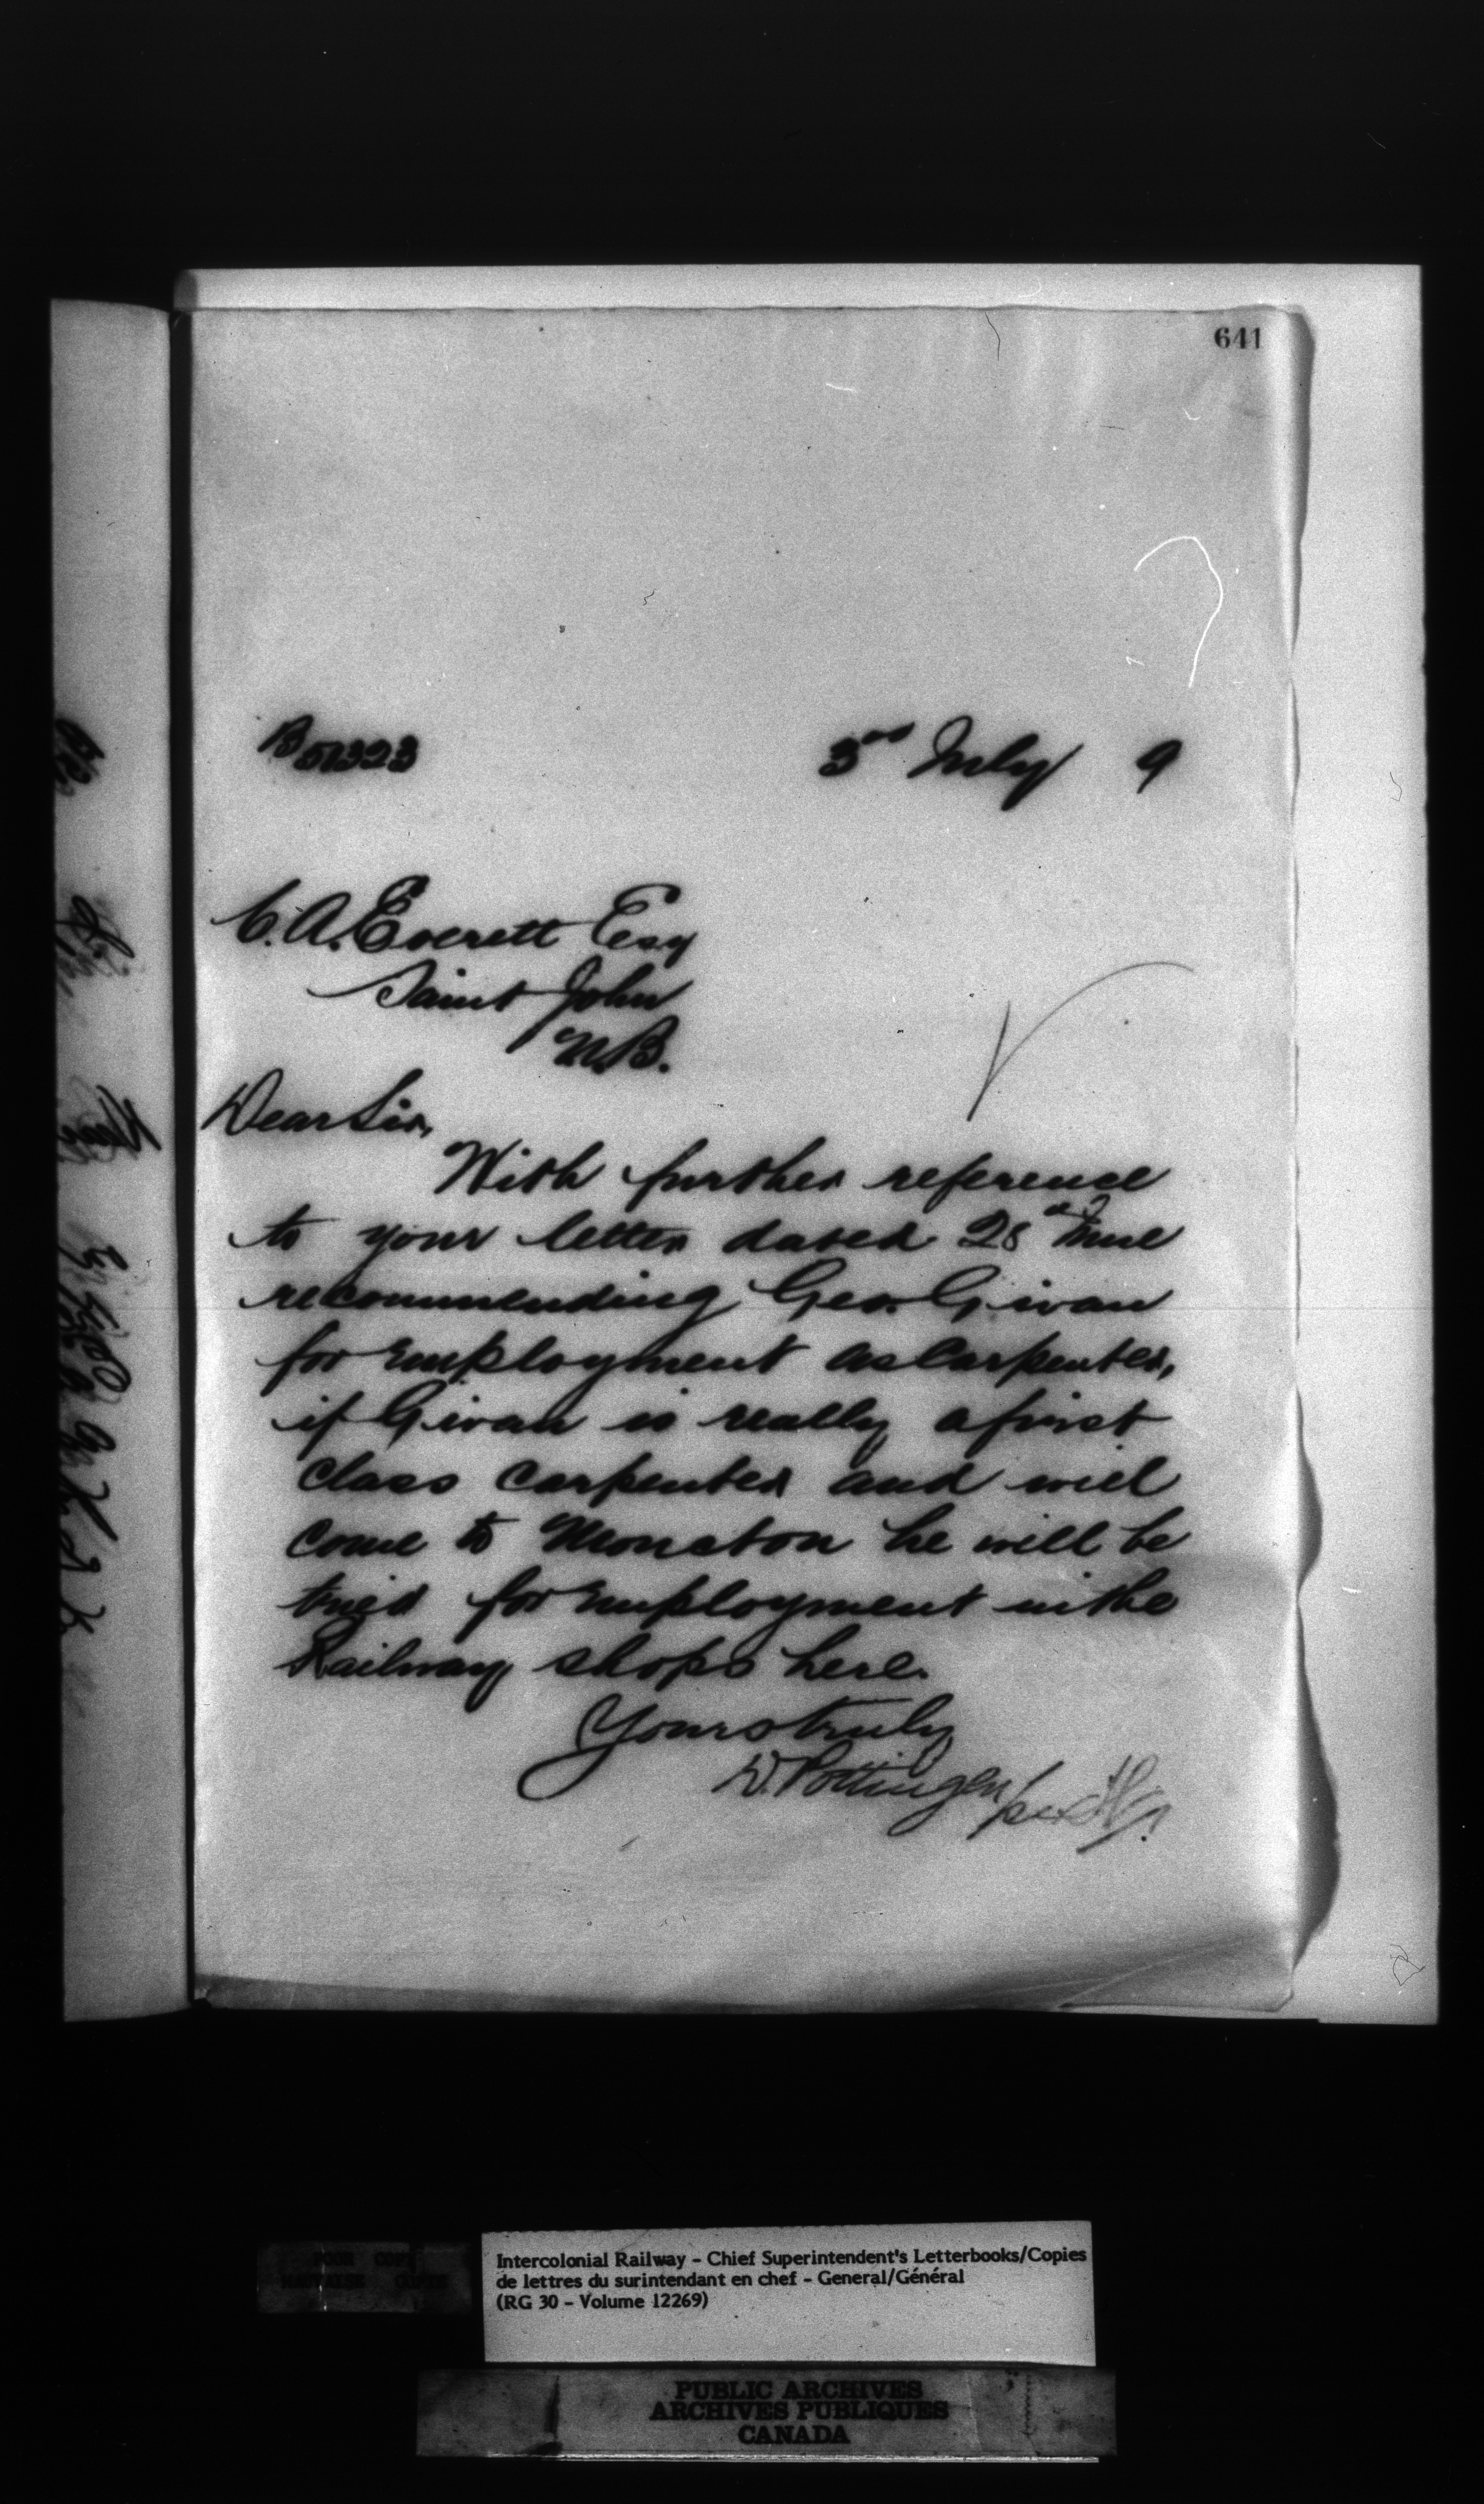 641
B 51323
3rd July 9
C. A. Everett Esq
Saint John
N.B.
Dear Sir,
With further reference
to your letter dated 28th
recommending Geo. Givan
for employment as Carpenter,
if Givan is really a first
class carpenter and will
come to Moncton he will be
tried for employment in the
Railway shops here.
Yours truly
D. Pottinger
POOR COPY
MAUVAISE COPIE
Intercolonial Railway - Chief Superintendent's Letterbooks/Copies
de lettres du surintendant en chef - General/Général
(RG 30 - Volume 12269)
PUBLIC ARCHIVES
ARCHIVES PUBLIQUES
CANADA